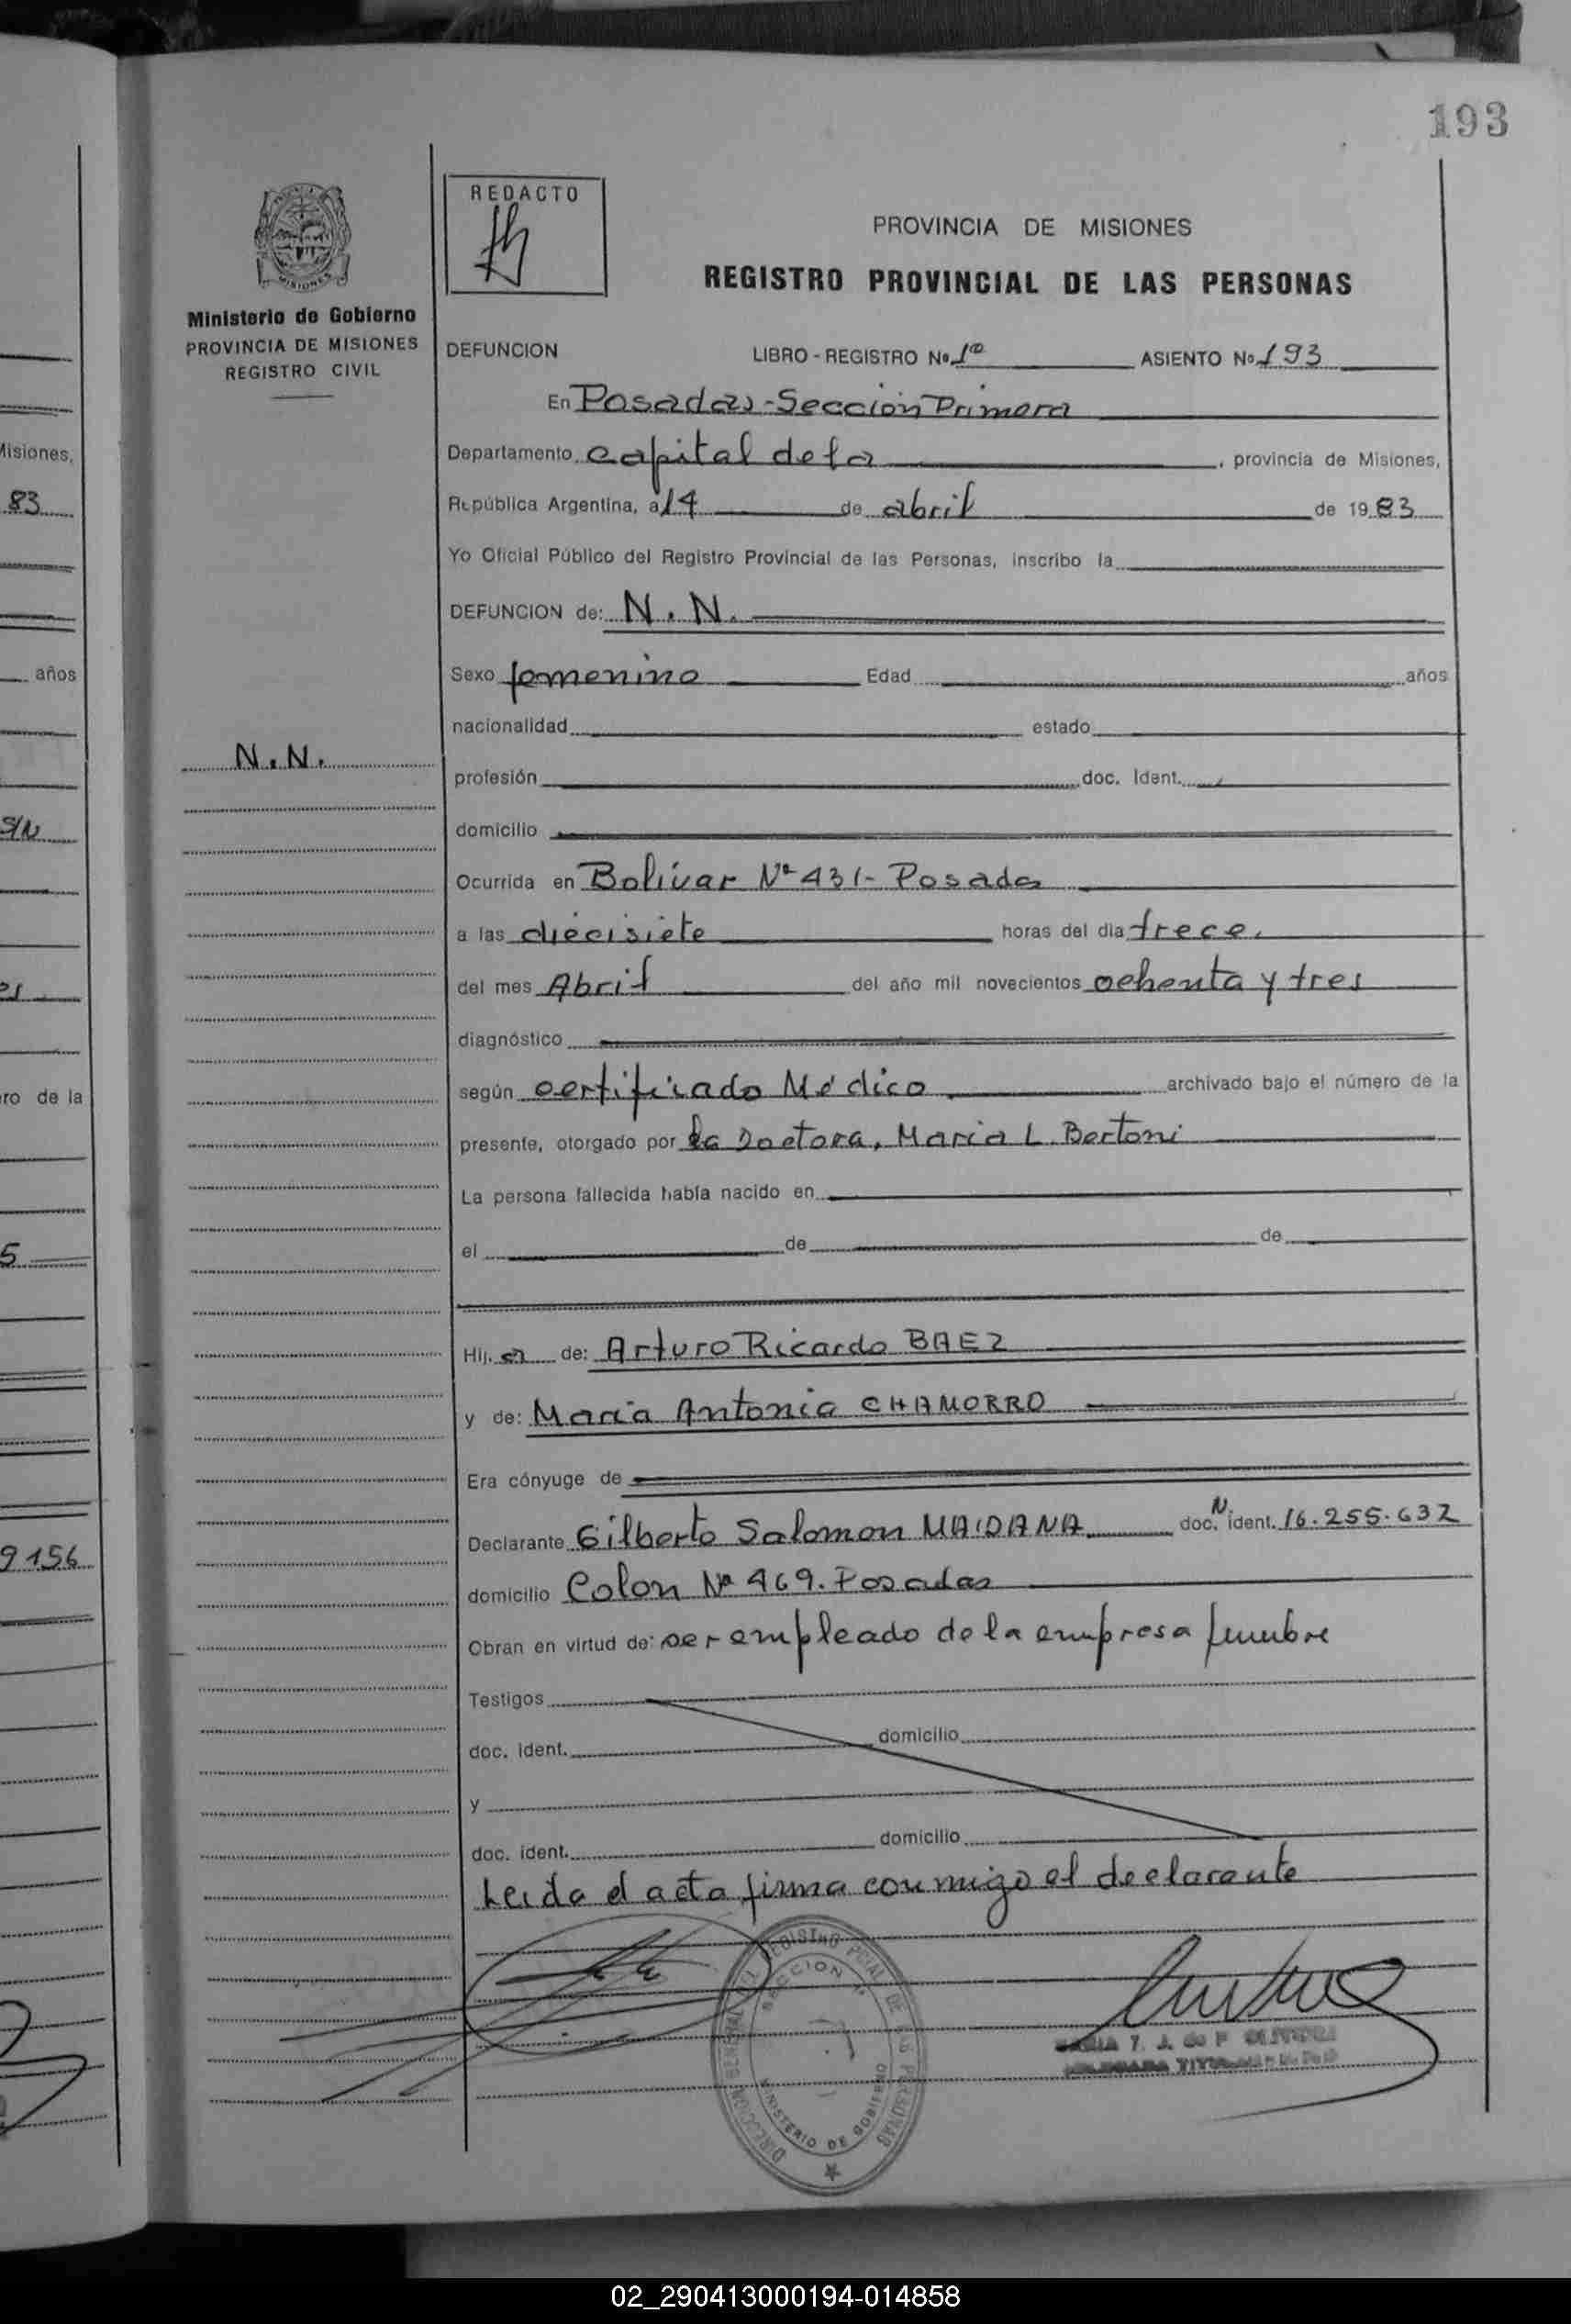 193
REDACTO
MISIONES
Ministerio de Gobierno
PROVINCIA DE MISIONES
REGISTRO CIVIL
PROVINCIA DE MISIONES
REGISTRO PROVINCIAL DE LAS PERSONAS
DEFUNCION LIBRO - REGISTRO No. 1º ASIENTO No. 193
En Posadas - Sección Primera
Departamento Capital de la, provincia de Misiones,
República Argentina, a 14 de abril de 1983
Yo Oficial Público del Registro Provincial de las Personas, inscribo la
DEFUNCION de: N.N.
Sexo femenino Edad años
nacionalidad estado
N.N.
profesión doc. Ident.
domicilio
Ocurrida en Bolívar Nº 431 - Posadas
a las diecisiete horas del dia trece.
del mes Abril del año mil novecientos ochenta y tres
diagnóstico
según certificado Médico archivado bajo el número de la
presente, otorgado por la Doctora, Maria L. Bertoni
La persona fallecida había nacido en
el de de
Hij. a de: Arturo Ricardo BAEZ
y de: María Antonia CHAMORRO
Era cónyuge de
Declarante Gilberto Salomon MAIDANA doc. N. ident. 16.255.632
domicilio Colon Nº 469. Posadas
Obran en virtud de: ser empleado de la empresa funebre
Testigos
doc. ident. domicilio
y
doc. ident. domicilio
Leida el acta firma conmigo el declarante
DIRECCION GENERAL DEL REGISTRO PCIAL DE LAS PERSONAS
SECCION 1ª
MINISTERIO DE GOBIERNO
Misiones,
83
años
S/N
ro de la
5
9156
02_290413000194-014858